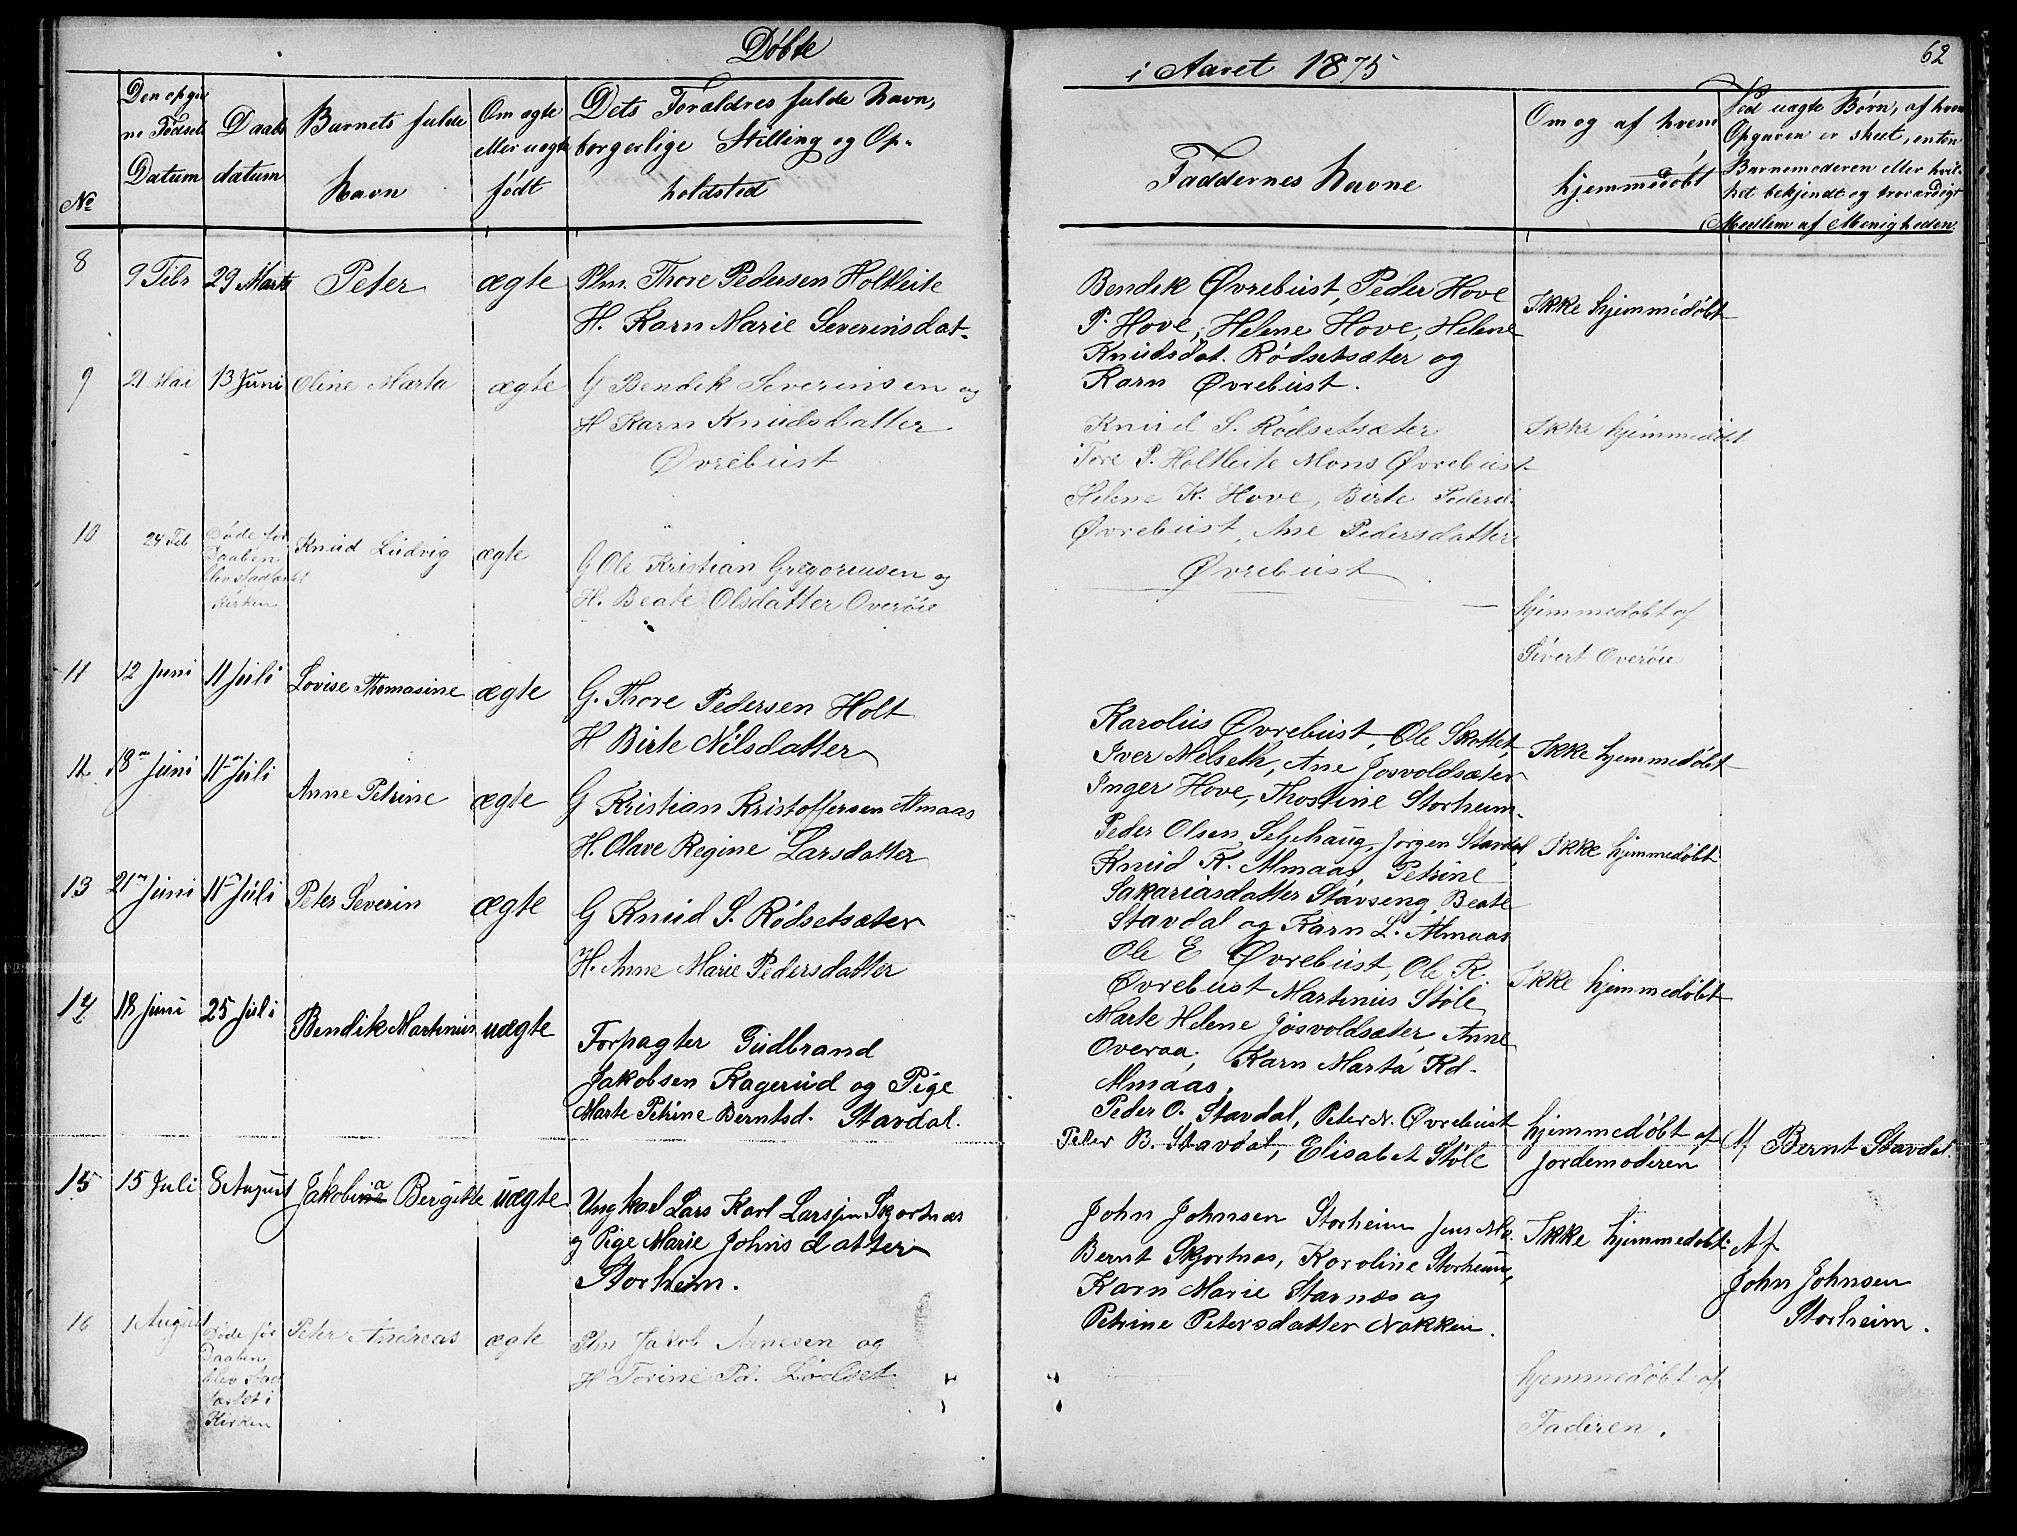 Døbte
i Aaret 1875
62
No
Den opgiv
ne Fødsels
Datum
Daabs
datum
Barnets fulde
Navn
Om ægte
eller uægte
født
Dets Forældres fulde Navn,
borgerlige Stilling og Op-
holdsted
Faddernes Navne
Om og af hvem
hjemmedøbt
Ved uægte Børn, af hvem
Opgaven er skeet, enten
Barnemoderen eller hvil-
ket bekjendt og troværdigt
Medlem af Menigheden.
8
9 Febr
29 Marts
Peter
ægte
Plm. Thore Pedersen Holtleite
H. Karn Marie Severinsdat.
Bendik Øvrebust, Peder Hove
P. Hove, Helene Hove, Helene
Knudsdat. Rødsetsæter og
Karn Øvrebust.
Ikke hjemmedøbt
9
21 Mai
13 Juni
Oline Marta
ægte
G Bendik Severinsen og
H Karn Knudsdatter
Øvrebust
Knud S. Rødsetsæter
Tore P. Holtleite Mons Øvrebust
Helene K. Hove, Birte Pedersd.
Øvrebust, Ane Pedersdatter
Øvrebust
Ikke hjemmedøbt
10
24 Feb
Døde før
Daaben
blev stadfæstet i
Kirken
Knud Ludvig
ægte
G Ole Kristian Gregoriusen og
H. Beate Olsdatter Overøie
hjemmedøbt af
Sivert Overøie
11
12 Juni
11 Juli
Lovise Thomasine
ægte
G. Thore Pedersen Holt
H Birte Nilsdatter
Karolius Øvrebust, Ole Skottet,
Iver Melseth, Ane Josvoldsæter
Inger Hove, Thostine Storheim.
Ikke hjemmedøbt
12
18n Juni
11n Juli
Anne Petrine
ægte
G Kristian Kristoffersen Almaas
H. Olave Regine Larsdatter
Peder Olsen Seljehaug, Jørgen Stavdal,
Knud K. Almaas, Petrine
Sakariasdatter Stavseng, Beate
Stavdal og Karn L. Almaas
Ikke hjemmedøbt
13
21n Juni
11n Juli
Peter Severin
ægte
G Knud S. Rødsetsæter
H. Anne Marie Pedersdatter
Ole E Øvrebust, Ole K.
Øvrebust Martinus Støle
Marte Helene Josvoldsæter, Anne
Overaa, Karn Marta Kd.
Almaas.
Ikke hjemmedøbt
14
18 Juni
25 Juli
Bendik Martinus
uægte
Forpagter Gudbrand
Jakobsen Kagerud og Pige
Marte Petrine Berntsd. Stavdal.
Peder O. Stavdal, Peter N. Øvrebust
Peter B. Stavdal, Elisabet Støle
hjemmedøbt af
Jordemoderen
Af Bernt Stavdal.
15
15 Juli
8 August
Jakobine a Bergitte
uægte
Ungkarl Lars Karl Larssen Skjortnæs
og Pige Marie Johnsdatter
Storheim.
John Johnsen Storheim Jens
Bernt Skjortnæs, Karoline Storheim,
Karn Marie Starnæs og
Petrine Petersdatter Nakken.
Ikke hjemmedøbt.
Af
John Johnsen
Storheim.
16
1 August
Døde før
Daaben
blev stad
fæstet i
Kirken
Peter Andreas
ægte
Plm Jakob Arnesen og
H Torine Pd. Lødset
hjemmedøbt af
Faderen.